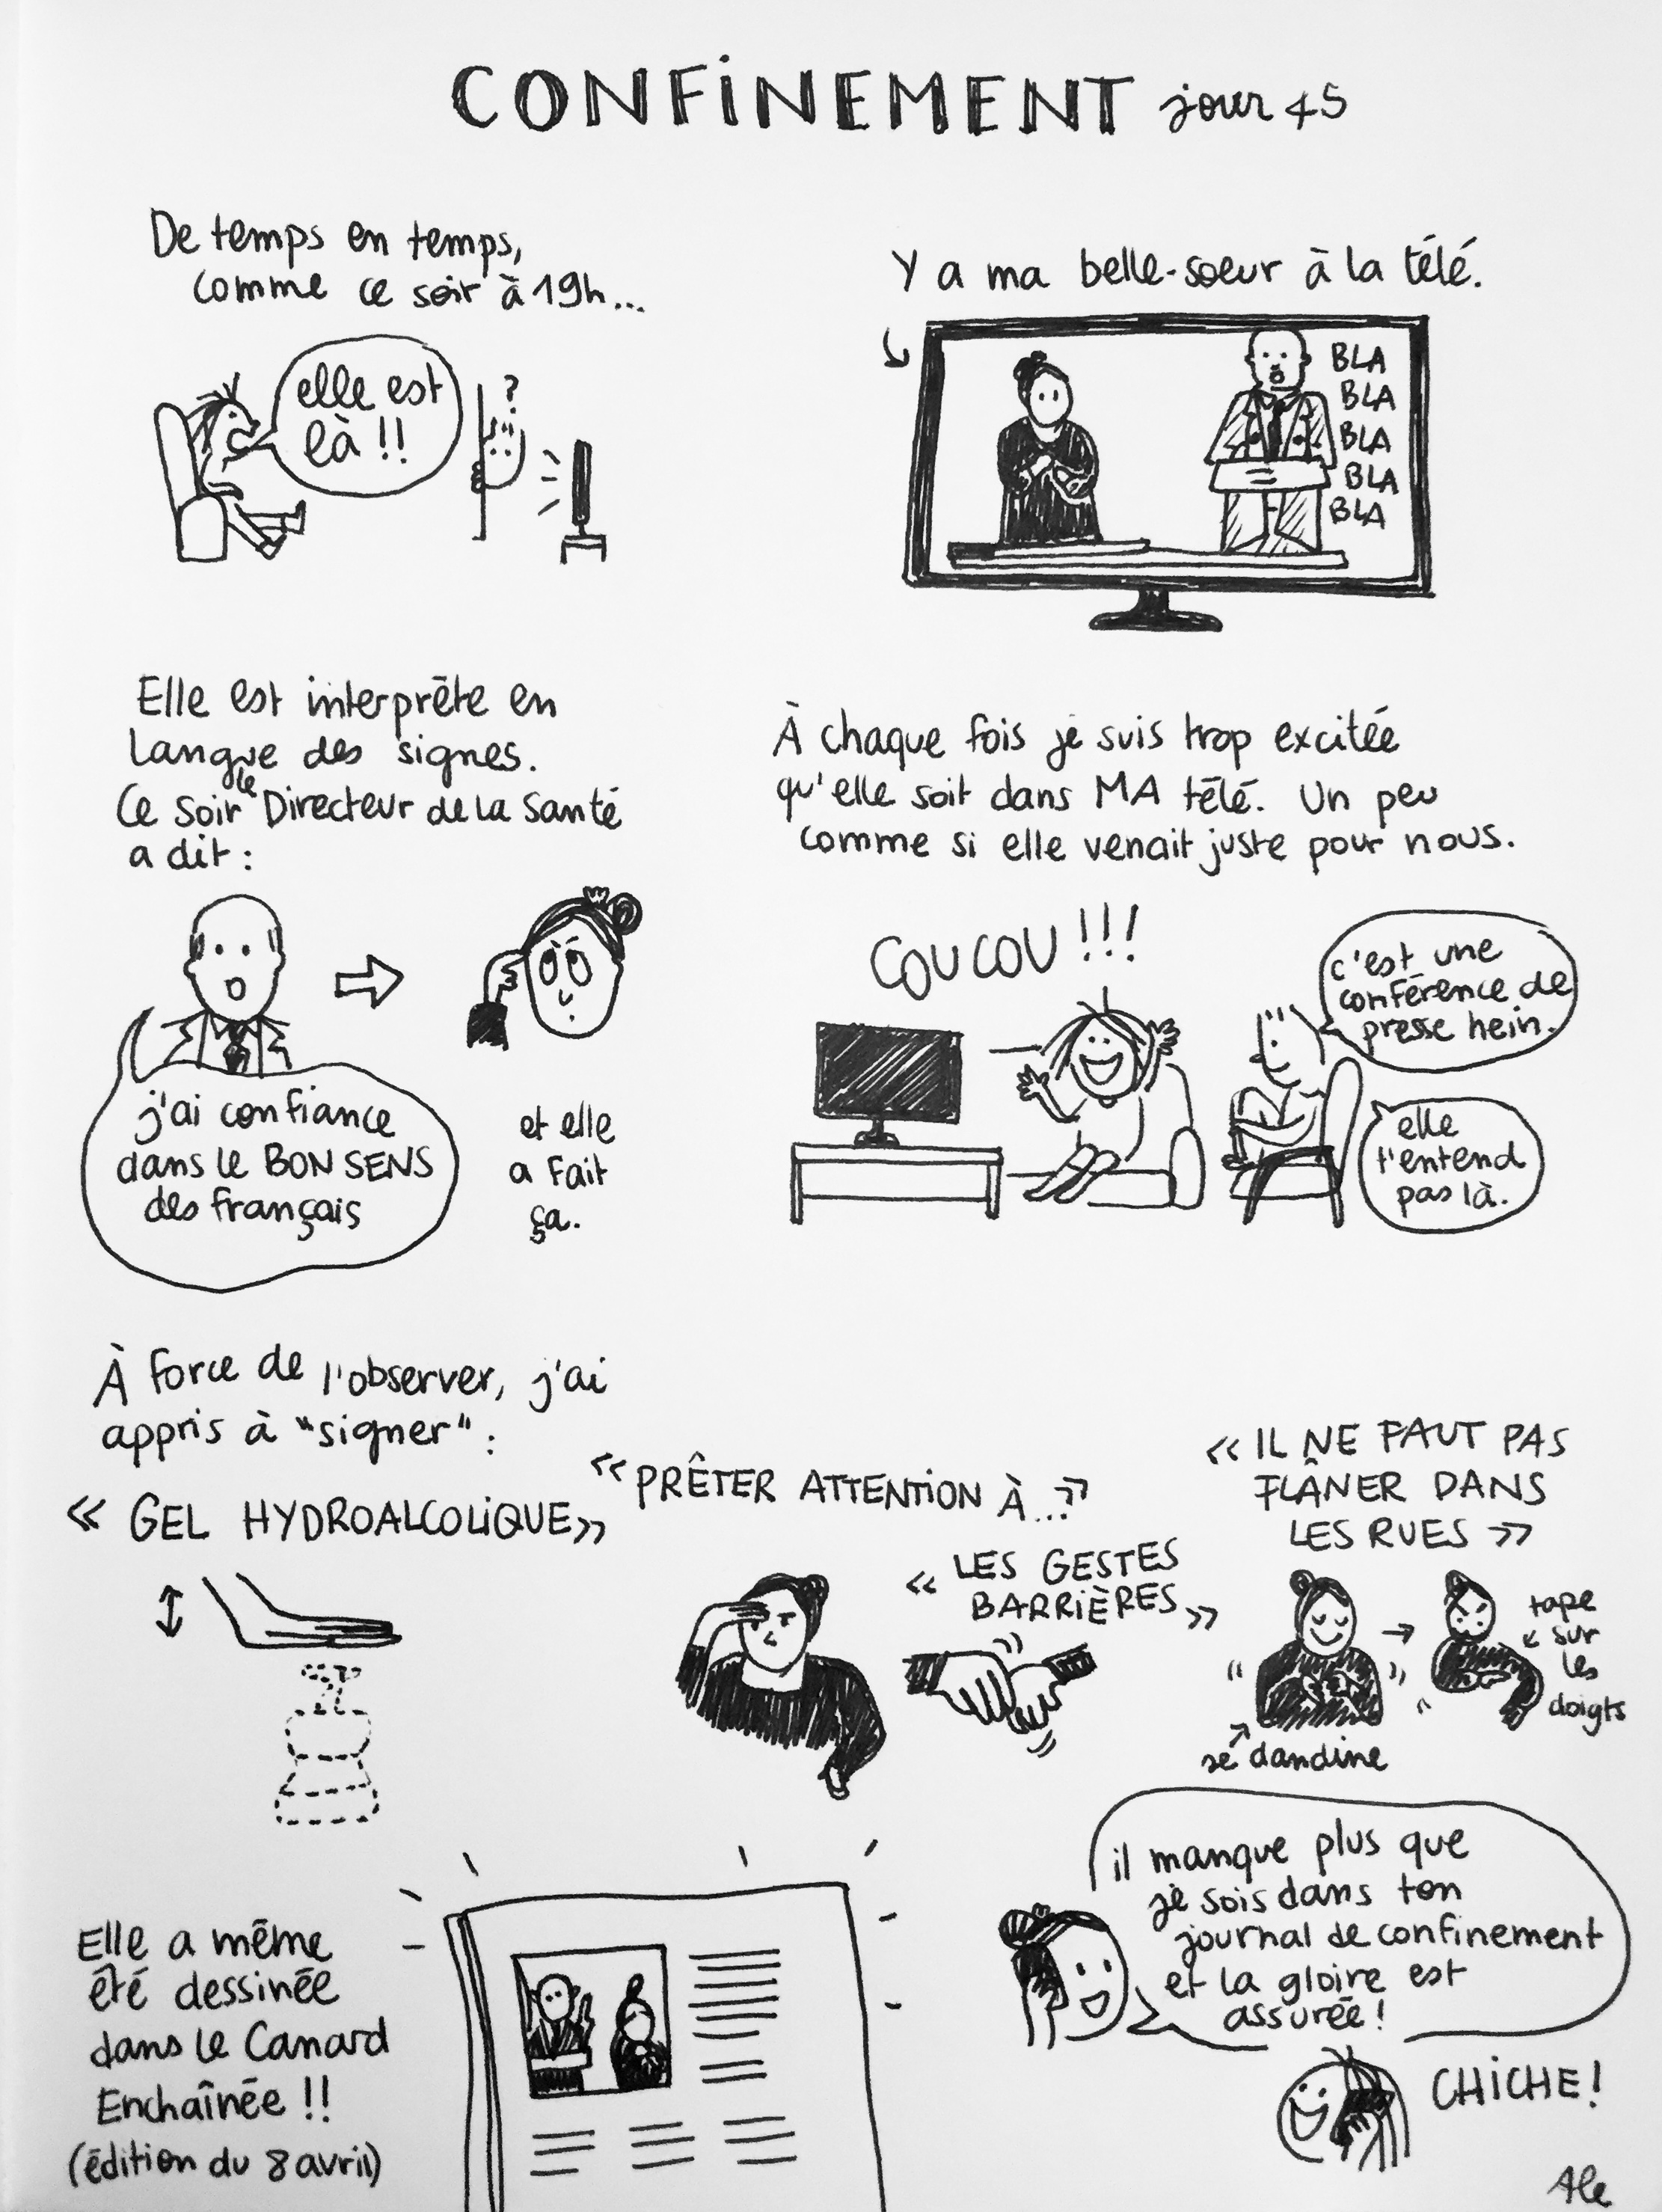 CONFiNEMENT jour 45
De temps en temps,
comme ce soir à 19h...
elle est
là !!
?
Y a ma belle-soeur à la télé.
BLA
BLA
BLA
BLA
BLA
Elle est interprète en
langue des signes.
Ce soir le Directeur de la Santé
a dit :
j'ai confiance
dans le BON SENS
des français
et elle
a fait
ça.
À chaque fois je suis trop excitée
qu'elle soit dans MA télé. Un peu
comme si elle venait juste pour nous.
COUCOU !!!
c'est une
conférence de
presse hein.
elle
t'entend
pas là.
À force de l'observer, j'ai
appris à "signer" :
« GEL HYDROALCOLiQUE »
« PRÊTER ATTENTiON À...»
« LES GESTES
BARRiÈRES »
« IL NE FAUT PAS
FLÂNER DANS
LES RUES »
se dandine
tape
sur
les
doigts
Elle a même
été dessinée
dans le Canard
Enchaînée !!
(édition du 8 avril)
il manque plus que
je sois dans ton
journal de confinement
et la gloire est
assurée !
CHiCHE !
Ale